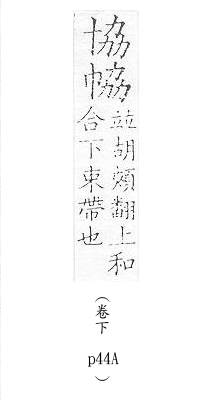 協
並胡頰翻上和
合下束帶也
（卷下 p44A）